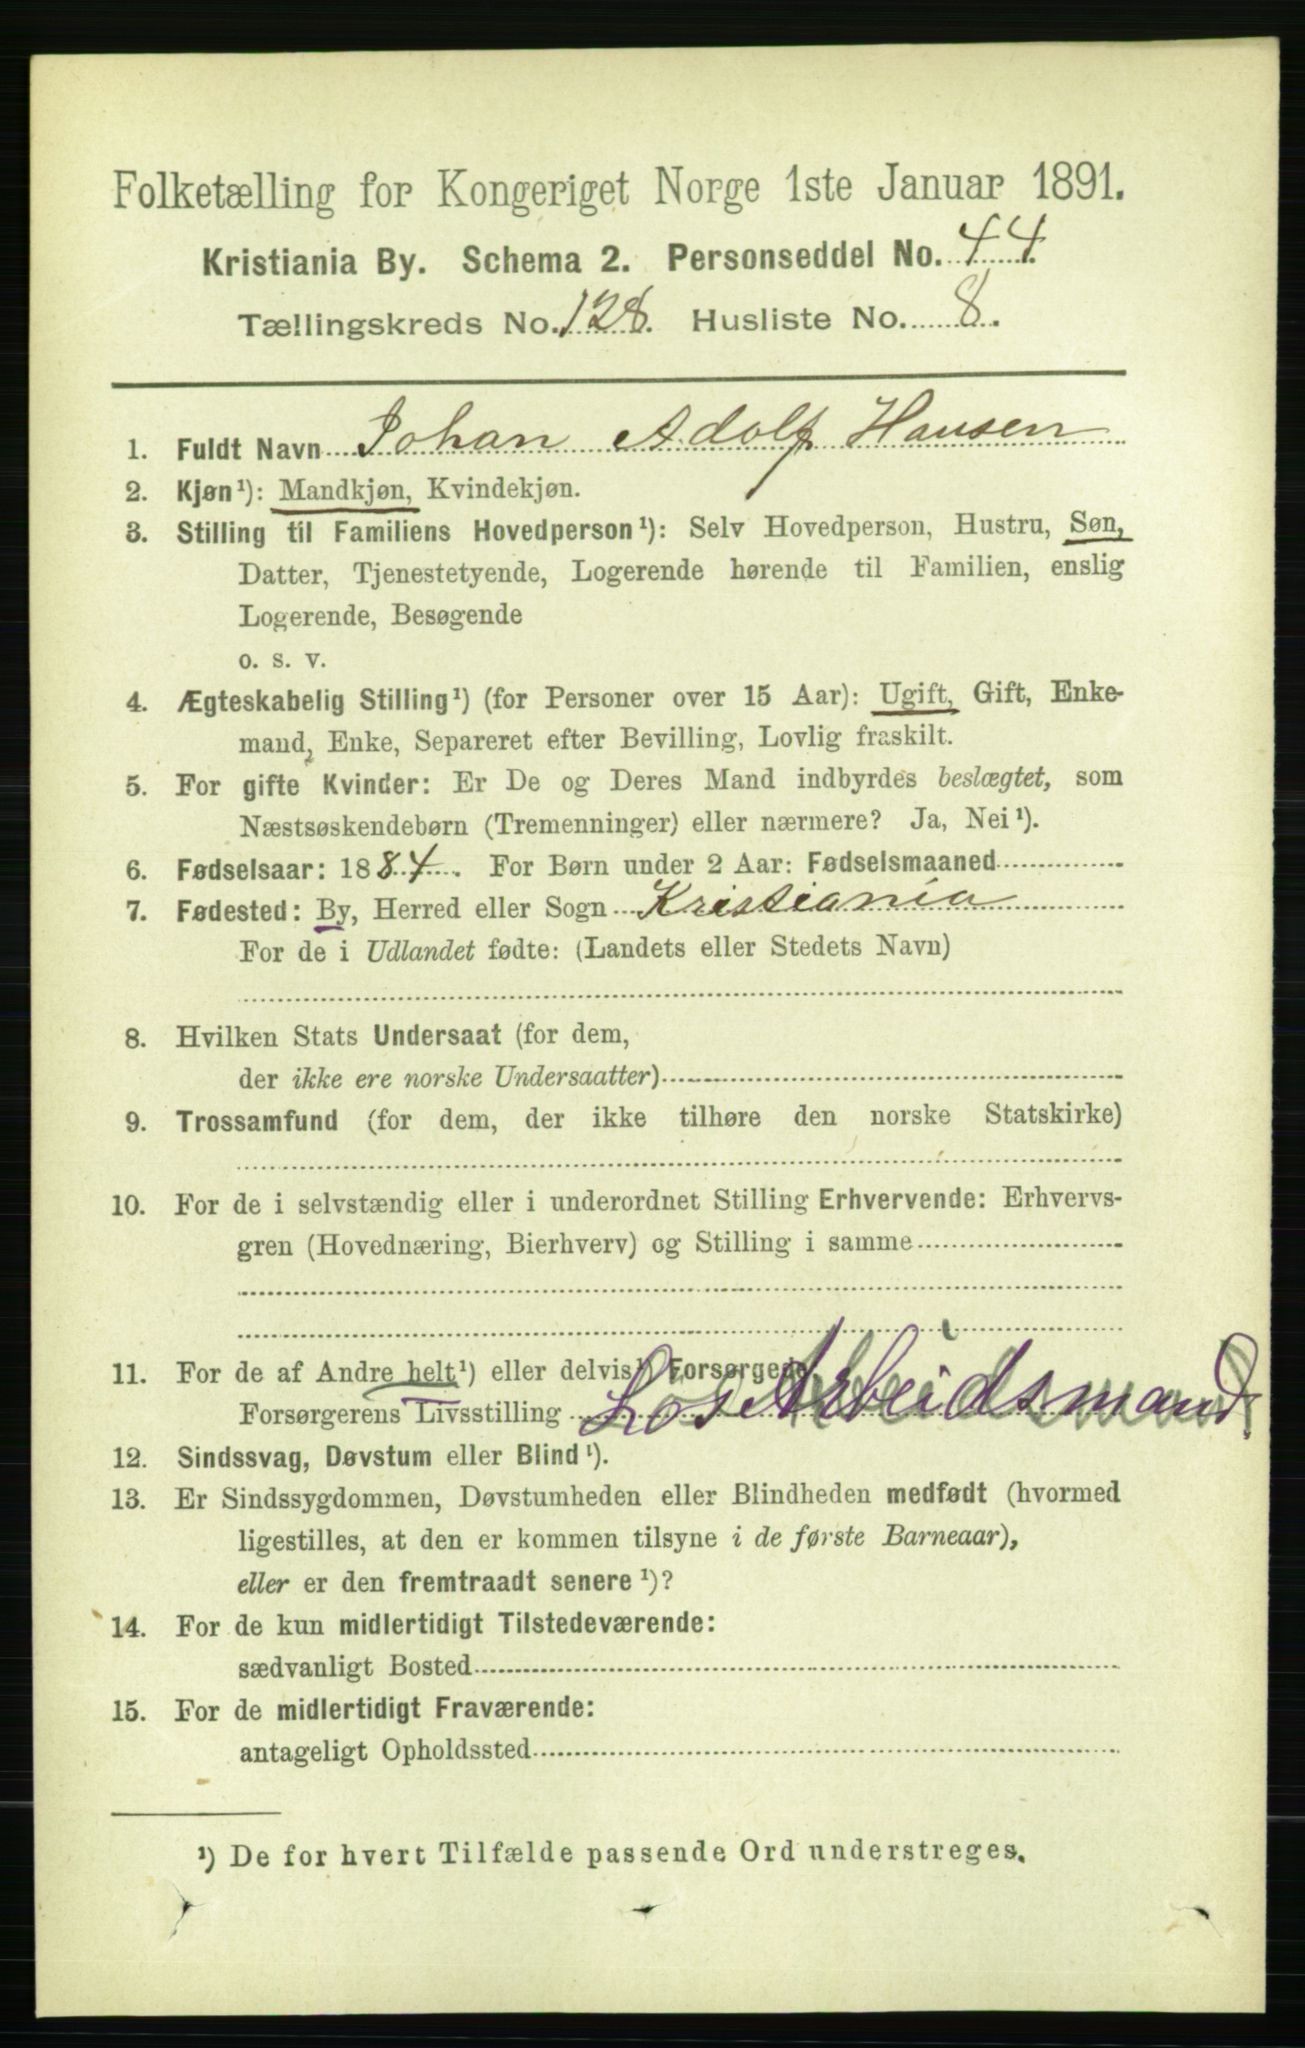 Folketælling for Kongeriget Norge 1ste Januar 1891.
Kristiania By. Schema 2. Personseddel No. 44.
Tællingskreds No. 128. Husliste No. 8.
1. Fuldt Navn Johan Adolf Hansen
2. Kjøn¹): Mandkjøn, Kvindekjøn.
3. Stilling til Familiens Hovedperson¹): Selv Hovedperson, Hustru, Søn,
Datter, Tjenestetyende, Logerende hørende til Familien, enslig
Logerende, Besøgende
o. s. v.
4. Ægteskabelig Stilling¹) (for Personer over 15 Aar): Ugift, Gift, Enke-
mand, Enke, Separeret efter Bevilling, Lovlig fraskilt.
5. For gifte Kvinder: Er De og Deres Mand indbyrdes beslægtet, som
Næstsøskendebørn (Tremenninger) eller nærmere? Ja, Nei¹).
6. Fødselsaar: 1884. For Børn under 2 Aar: Fødselsmaaned
7. Fødested: By, Herred eller Sogn Kristiania
For de i Udlandet fødte: (Landets eller Stedets Navn)
8. Hvilken Stats Undersaat (for dem,
der ikke ere norske Undersaatter)
9. Trossamfund (for dem, der ikke tilhøre den norske Statskirke)
10. For de i selvstændig eller i underordnet Stilling Erhvervende: Erhvervs-
gren (Hovednæring, Bierhverv) og Stilling i samme
11. For de af Andre helt¹) eller delvis¹) Forsørgede:
Forsørgerens Livsstilling Løs Arbeidsmand
12. Sindssvag, Døvstum eller Blind¹).
13. Er Sindssygdommen, Døvstumheden eller Blindheden medfødt (hvormed
ligestilles, at den er kommen tilsyne i de første Barneaar),
eller er den fremtraadt senere¹)?
14. For de kun midlertidigt Tilstedeværende:
sædvanligt Bosted
15. For de midlertidigt Fraværende:
antageligt Opholdssted
¹) De for hvert Tilfælde passende Ord understreges.